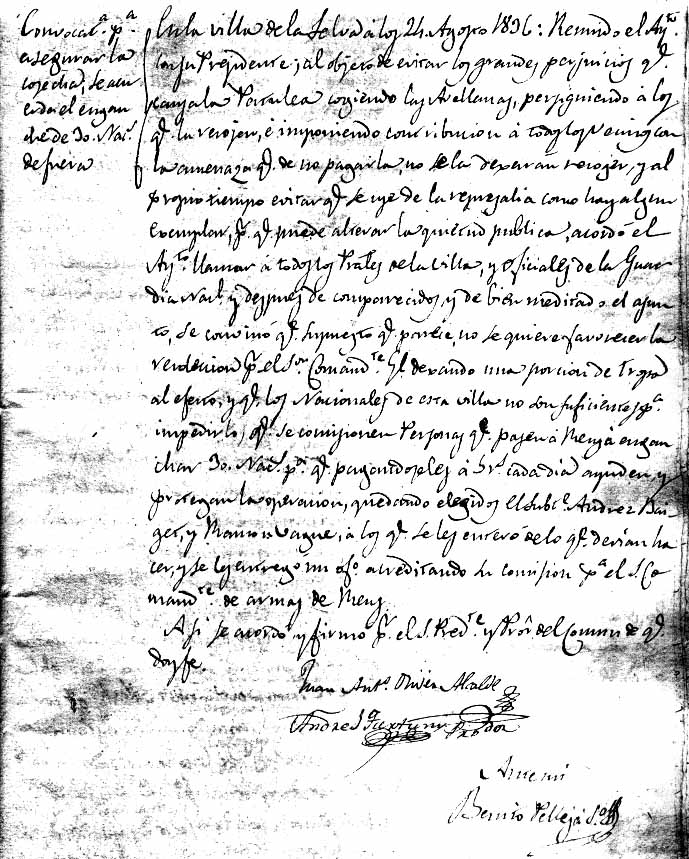 Convocat.ª p.ª
asegurar la
cosecha, se acu
erda el engan
che de 30. Nac.s
de fuera
En la villa de la Selva á los 24. Agosto 1836: Reunido el Ay.to
con su Presidente, y al objeto de evitar los grandes perjuicios q.e
causa la Patulea cogiendo las Avellanas, persiguiendo á los
q.e la recojen, é imponiendo contribucion á todos los que
la amenaza q.e de no pagarla, no se la dexarán recojer, y al
propio tiempo evitar q.e se use de la represalia como hay algun
exemplar, p.r q.e puede alterar la quietud publica, acordó el
Ay.to llamar á todos los Pral.es de la villa, y oficiales de la Guar
dia Nac.l y despues de comparecidos, y de bien meditado el asun
to, se convinó q.e supuesto q.e parece no se quiere favorecer la
recoleccion p.r el S.or Comand.te G.l dexando una porcion de Tropa
al efecto, y q.e los Nacionales de esta villa no son suficientes p.ª
impedirlo, q.e se comisionen Personas q.e pasen á Reus á engan
char 30. Nac.s p.ª q.e pagandoles á 5 r.s cada dia ayuden, y
protegan la operacion, quedando elegidos el Subt.e Andrez Bai
get, y Ramon Vague, á los q.e se les enteró de lo q.e devian ha
cer, y se les entregó un of.o acreditando su comision p.ª el S. Co
mand.te de armas de Reus.
Asi se acordó y firmo p.r el S. Pred.te y Pror. del Comun de q.e
doy fe.
Juan Ant.o Oliver Alcalde
Andres Fortuny Prôdor
Antemi
Benito Pellejá S.o